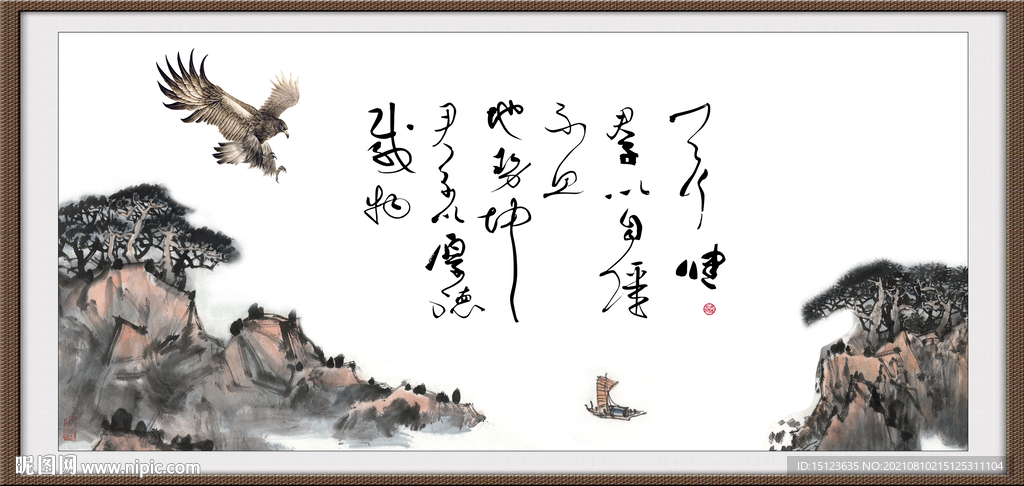 天行健
君子以自强
不息
地势坤
君子以厚德
载物
昵图网 www.nipic.com
ID:15123635 NO:20210810215125311104